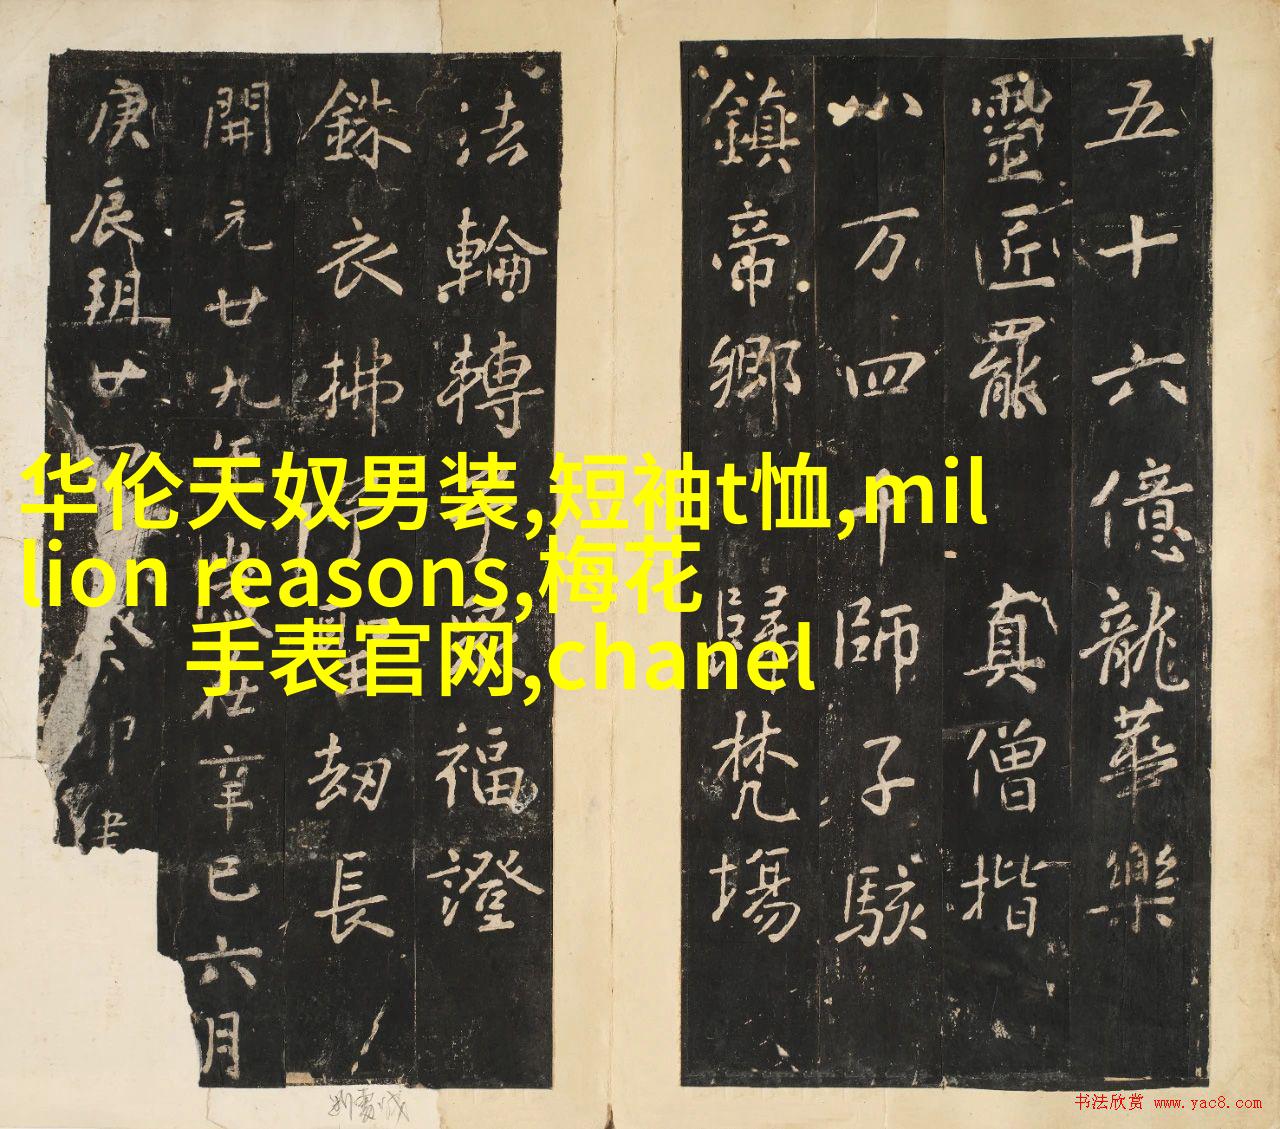 五十六億龍華樂
靈匠罷 真僧揩
八万四千師子駭
鎮帝鄉 歸梵場
法輪轉 福證
銖衣拂 劫長
開元廿九年歲在辛巳六月
庚辰朔廿 癸卯建
华伦天奴男装,短袖t恤,mil
lion reasons,梅花
手表官网,chanel
书法欣赏 www.yac8.com